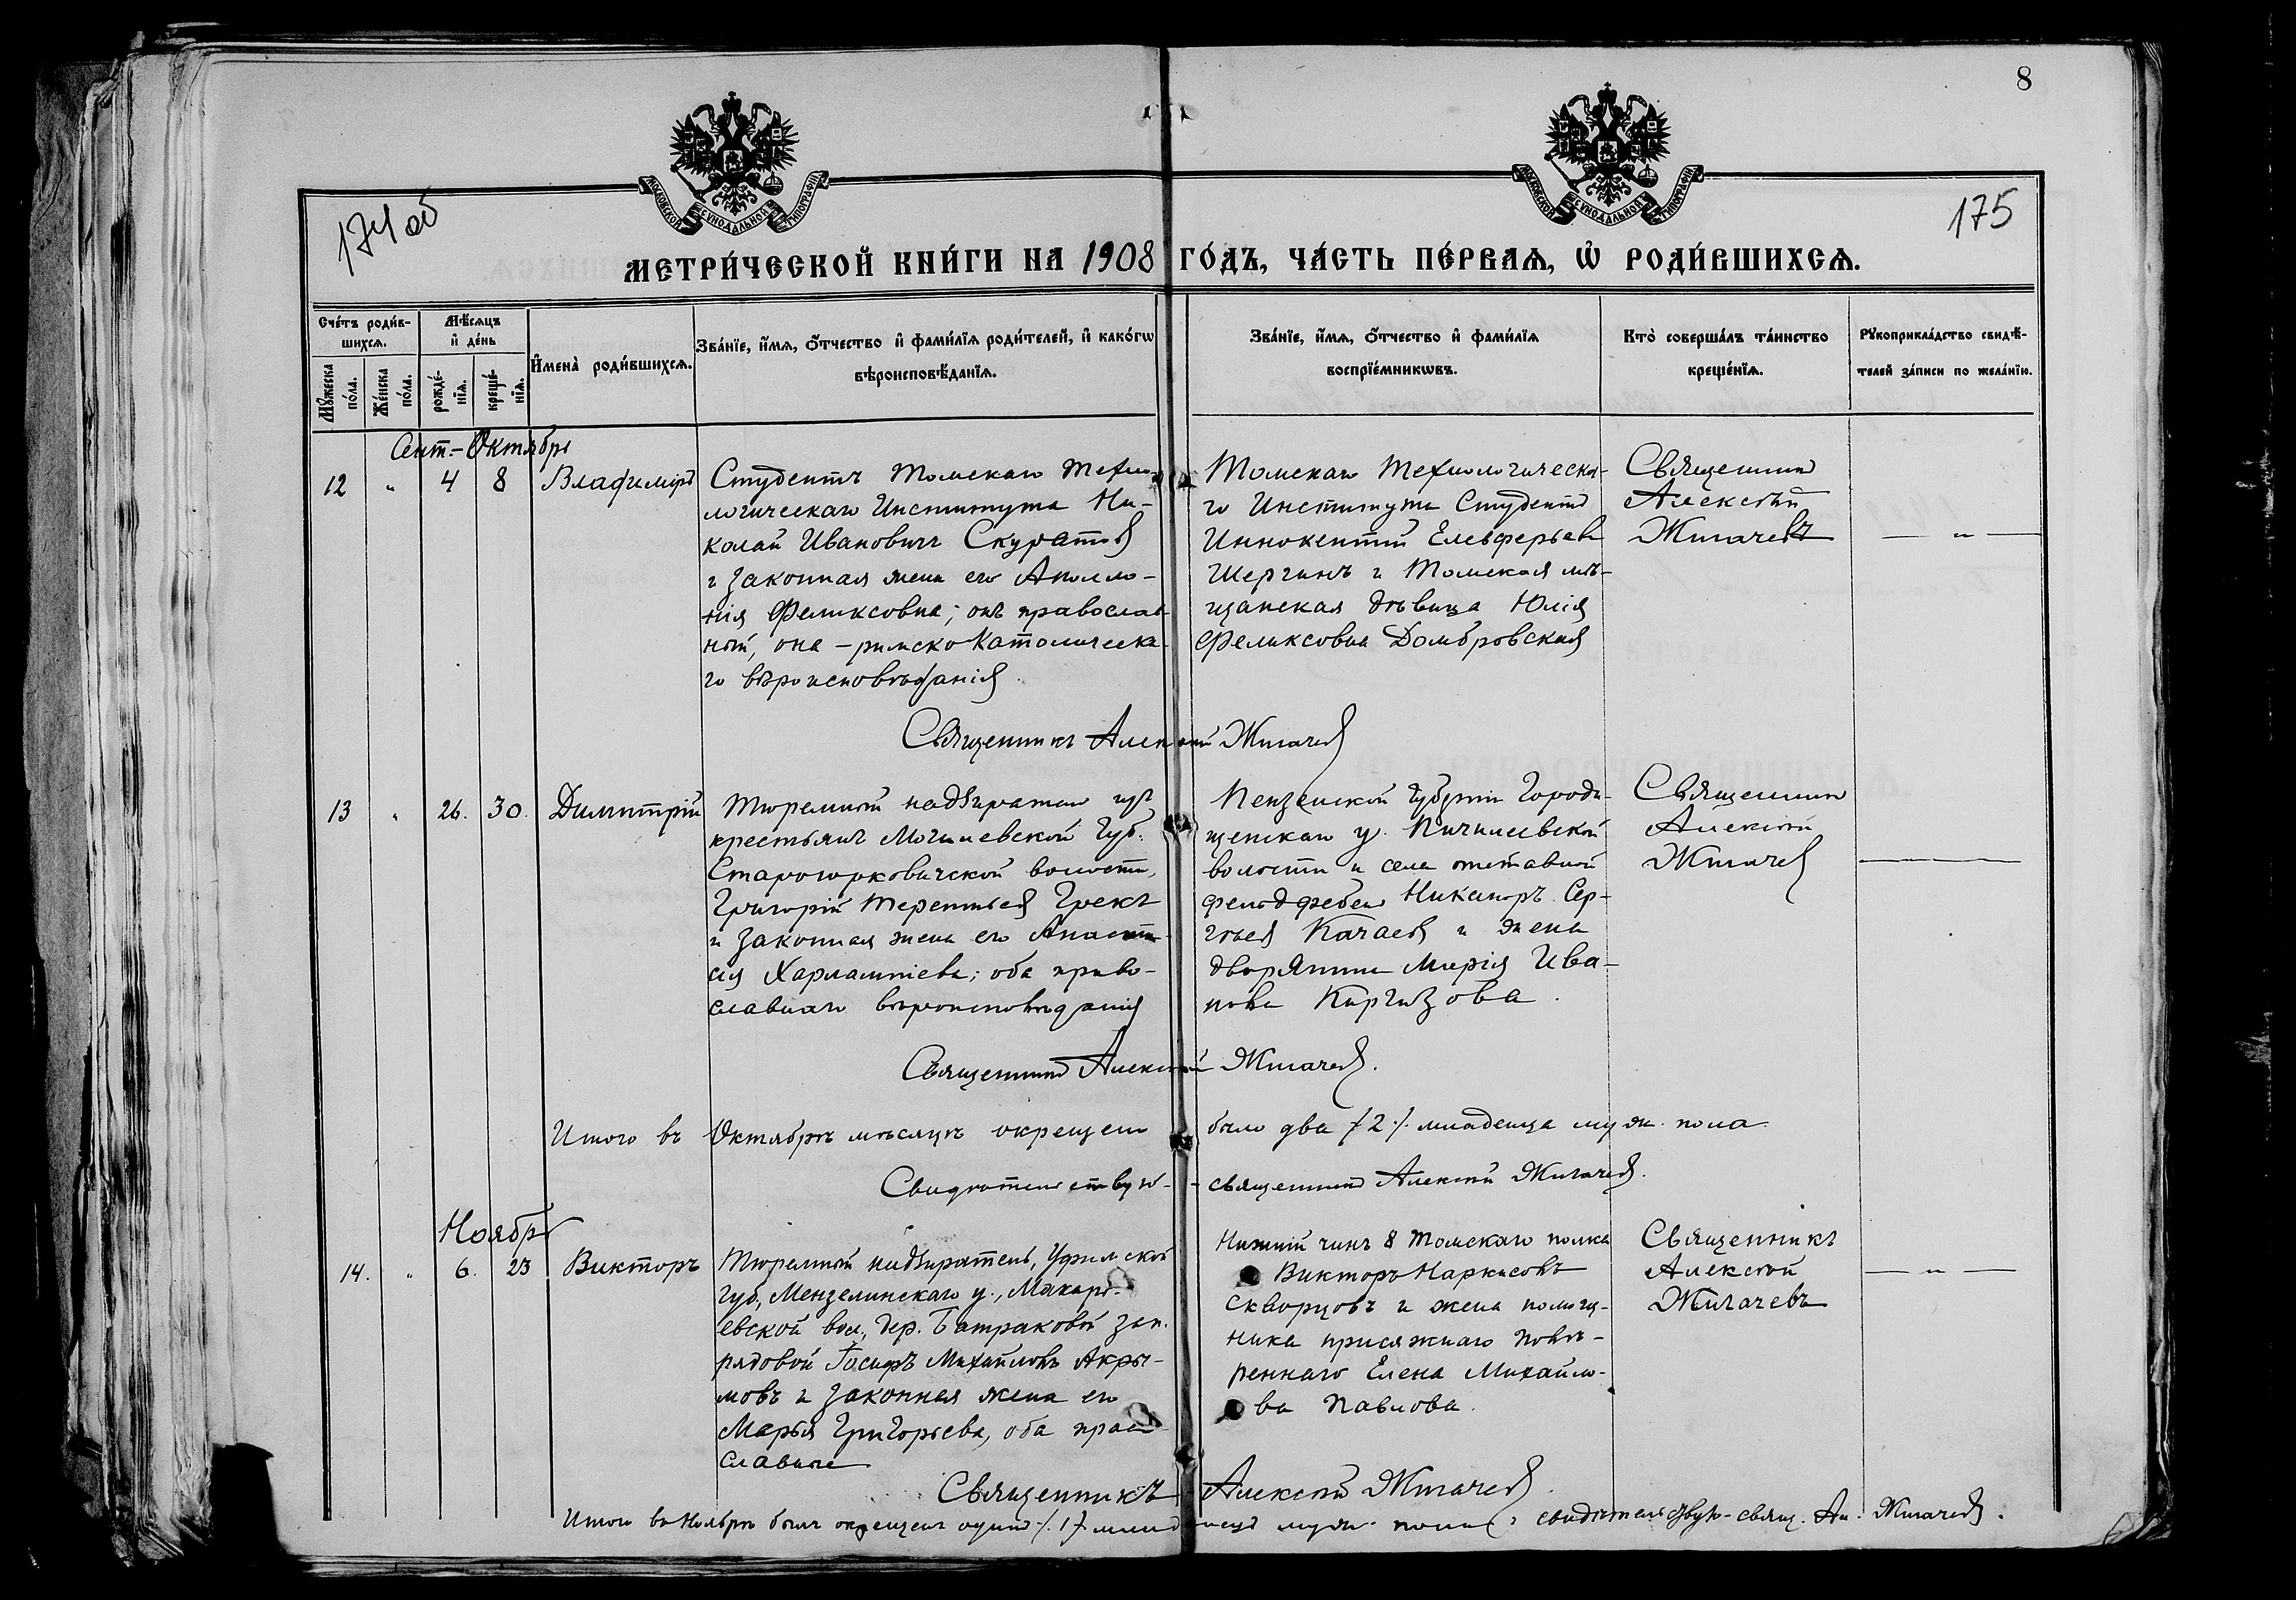 8
МОСКОВСКОЙ СѴНОДАЛЬНОЙ ТИПОГРАФІИ
МОСКОВСКОЙ СѴНОДАЛЬНОЙ ТИПОГРАФІИ
174 об
175
МЕТРИ́ЧЕСКОЙ КНИ́ГИ НА 1908 ГО́ДЪ, ЧА́СТЬ ПЕ́РВАѦ, Ѡ҆ РОДИ́ВШИХСѦ.
Сче́тъ роди́в-
шихсѧ.
Мѣ́сѧцъ
и҆ де́нь
Мꙋ́жеска по́ла.
Же́нска по́ла.
рожде́-
нїѧ.
креще́-
нїѧ.
И҆мена̀ роди́вшихсѧ.
Зва́нїе, и҆́мѧ, ѻ҆́тчество и҆ фами́лїѧ роди́телей, и҆ како́гѡ
вѣроисповѣ́данїѧ.
Зва́нїе, и҆́мѧ, ѻ҆́тчество и҆ фами́лїѧ
воспрїе́мникѡвъ.
Кто̀ соверша́лъ та́инство
креще́нїѧ.
Рꙋкоприкла́дство свидѣ́-
телей за́писи по жела́нїю.
Сент.-Октябрь
12 " 4 8 Владиміръ
Студентъ Томскаго Техно-
логическаго Института Ни-
колай Ивановичъ Скуратовъ
и законная жена его Аполло-
нія Феликсовна; онъ православ-
ный, она – римско Католическа-
го вѣроисповѣданія.
Томскаго Технологическа-
го Института Студентъ
Иннокентій Елевферьевъ
Шергинъ и Томская мѣ-
щанская дѣвица Юлія
Феликсовна Домбровская
Священникъ
Алексѣй
Жигачевъ
— " —
Священникъ Алексѣй Жигачевъ
13 " 26. 30. Димитрій
Тюремный надзиратель изъ
крестьянъ Могилевской Губ.
волости,
Григорій Терентьевъ Грекъ
и законная жена его Анаста-
сія Харлампіева; оба право-
славнаго вѣроисповѣданія
Пензенской Губерніи Городи-
щенскаго у.
волости и села отставной
фельдфебель Никаноръ Сер-
гѣевъ Качаевъ и жена
дворянина Марія Ива-
нова Киргизова.
Священникъ
Алексѣй
Жигачевъ
Священникъ Алексѣй Жигачевъ.
Итого въ Октябрѣ мѣсяцѣ окрещено было два /2/ младенца муж. пола.
Свидѣтельствую - священникъ Алексѣй Жигачевъ.
Ноябрь
14. " 6. 23 Викторъ
Тюремный надзиратель, Уфимской
губ., Мензелинскаго у., Макарь-
евской вол., дер. Батраковой зап.
рядовой Іосифъ Михайловъ Акры-
мовъ и законная жена его
Марья Григорьева, оба право-
славные
Нижній чинъ 8 Томскаго полка
Викторъ Наркисовъ
Скворцовъ и жена помощ-
ника присяжнаго повѣ-
реннаго Елена Михайло-
ва Павлова.
Священникъ
Алексѣй
Жигачевъ
— " —
Священникъ Алексѣй Жигачевъ.
Итого въ Ноябрѣ былъ окрещенъ одинъ /1/ младенецъ муж. пола, свидѣтельствую - свящ. Ал. Жигачевъ.